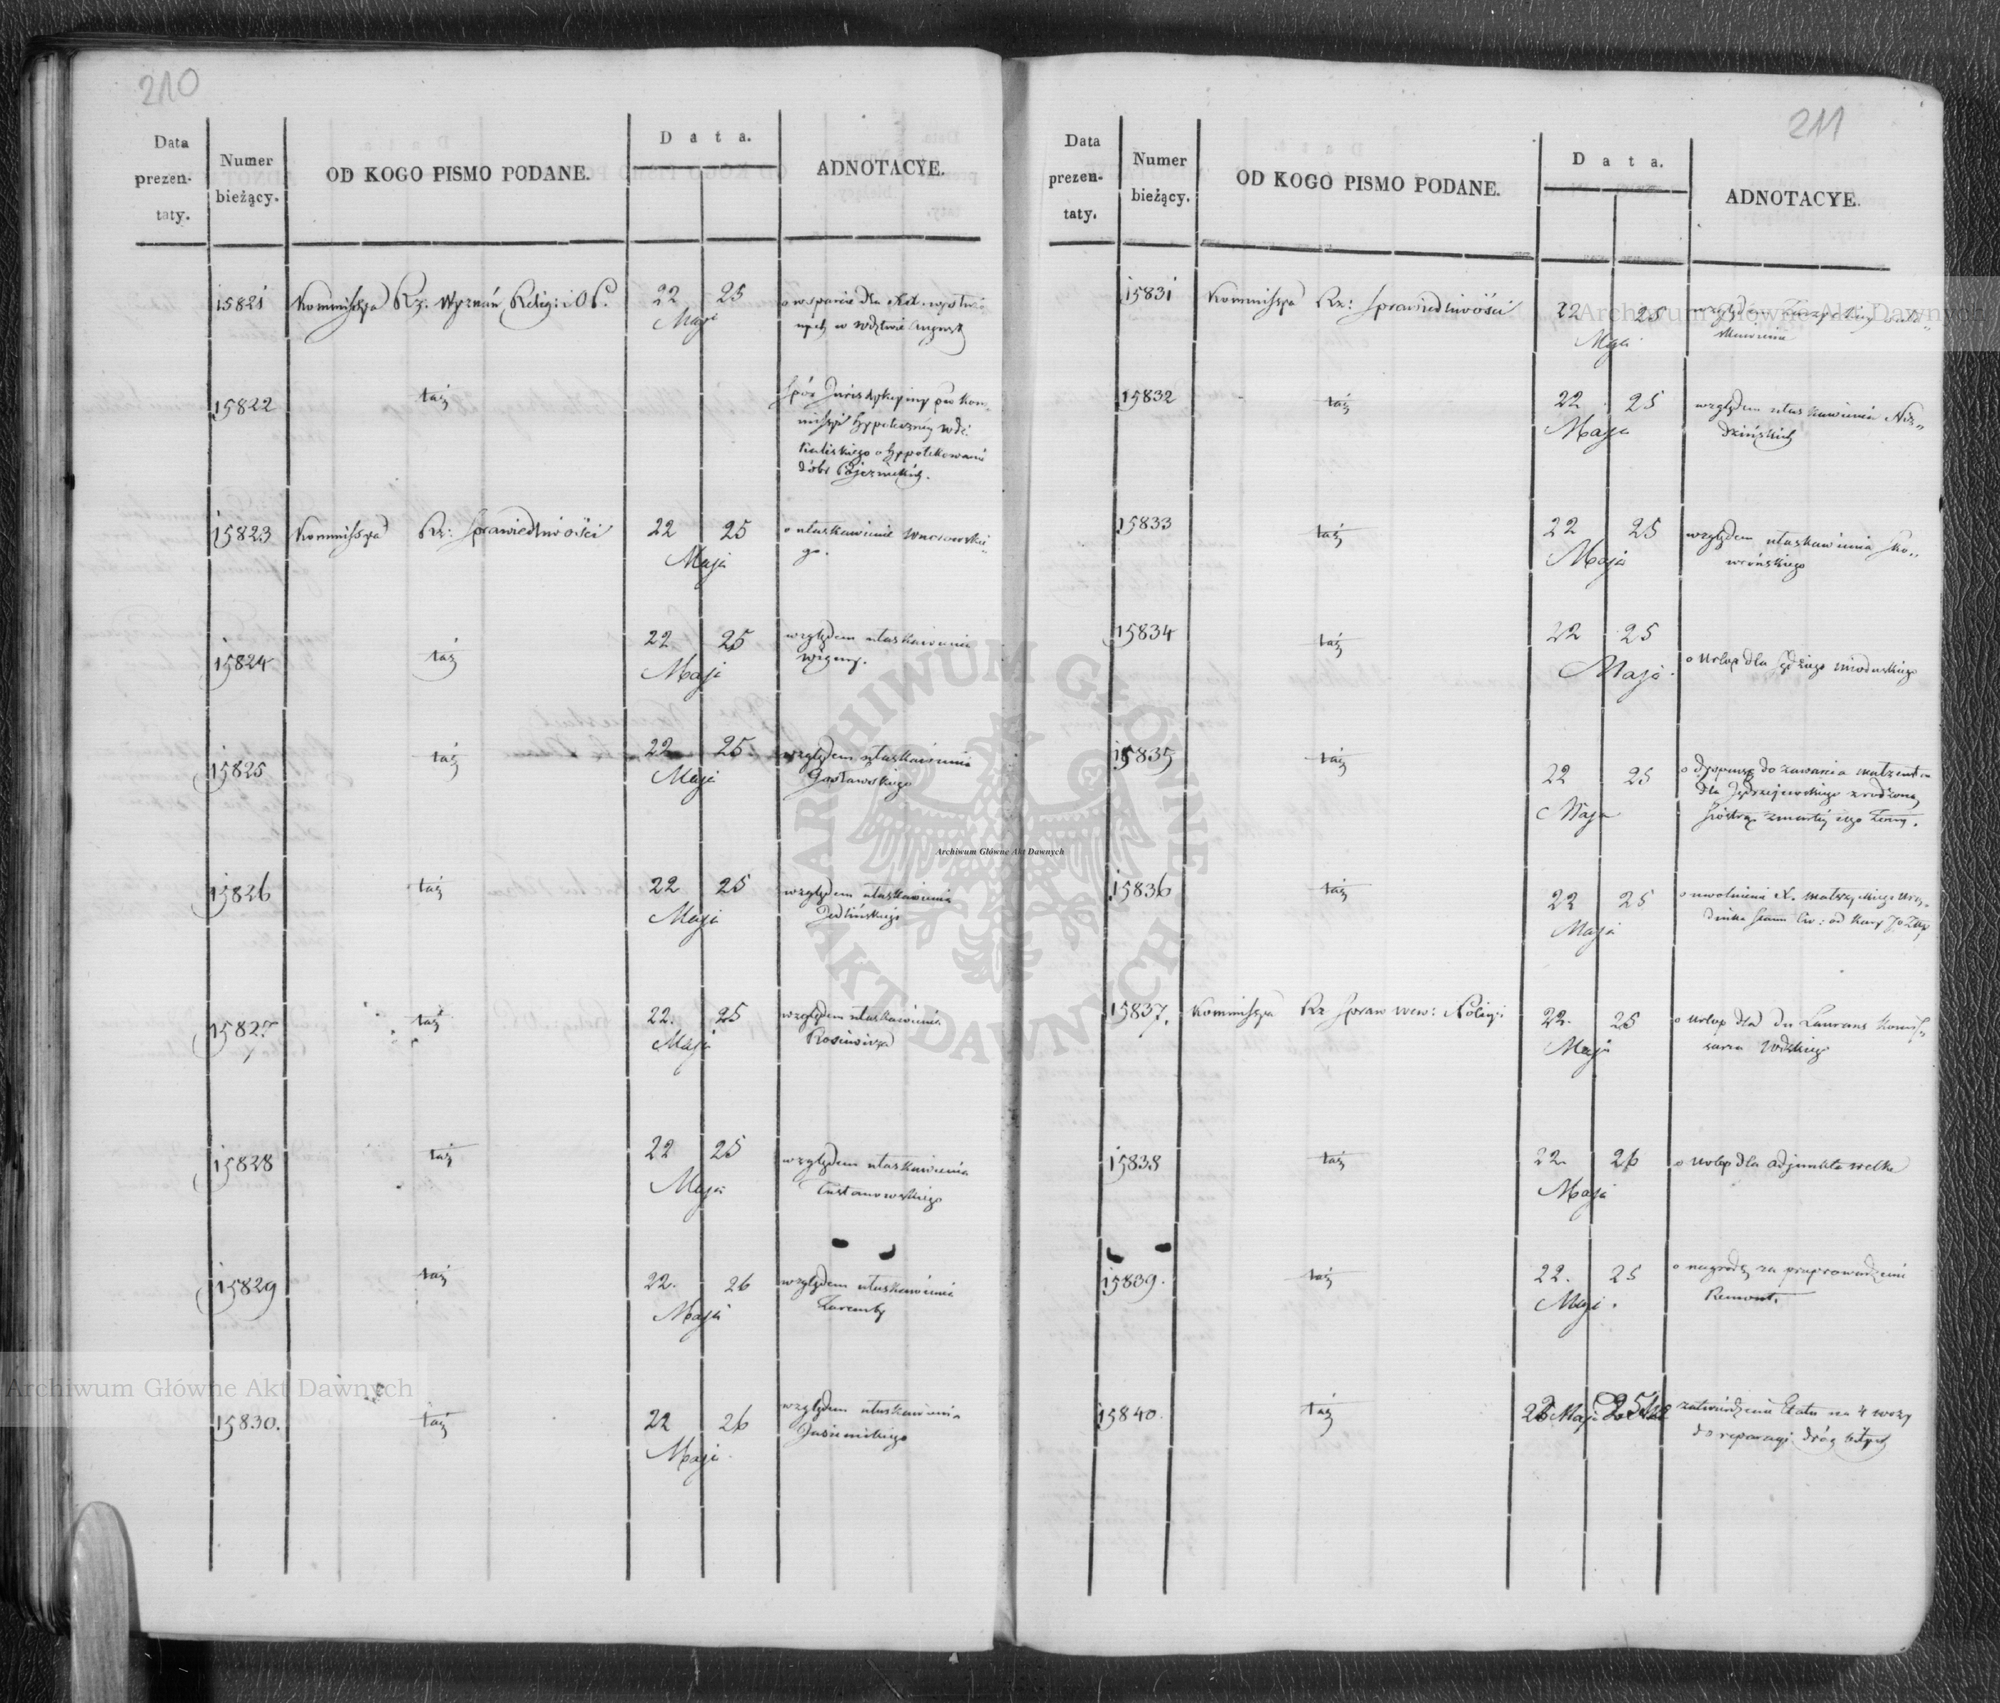 210
Data
prezen-
taty.
Numer
bieżący.
OD KOGO PISMO PODANE.
Data.
ADNOTACYE.
15821 Kommissya Rz. Wyznań Religi: i O P. 22 25 o wsparcie dla
Maja
15822 taż Spór Jurisdykcyiny
missyi Hypoteczney Wdz.
Kaliskiego o Hypotekowanie
dóbr
15823 Kommissya Rz: Sprawiedliwości 22 25 o ułaskawienie
Maja go.
15824 taż 22 25 względem ułaskawienia
Maja
15825 taż 22 25 względem ułaskawienia
Maja Gosławskiego
15826 taż 22 25 względem ułaskawienia
Maja Jedlińskiego
15827 taż 22. 25 względem ułaskawienia
Maja
15828 taż 22 25 względem ułaskawienia
Maja Tustanowskiego
15829 taż 22. 26 względem ułaskawienia
Maja Zaremby
15830. taż 22 26 względem ułaskawienia
Maja Jasieńskiego
211
Data
prezen-
taty.
Numer
bieżący.
OD KOGO PISMO PODANE.
Data.
ADNOTACYE.
15831 Kommissya Rz: Sprawiedliwości 22 25 względem
Maja
15832 taż 22 25 względem ułaskawienia
Maja
15833 taż 22 25 względem ułaskawienia Sko„
Maja wrońskiego
15834 taż 22 25
Maja o Urlop dla Sędziego
15835 taż 22 25 o
Maja dla Jędrzejewskiego z rodzoną
siostrą zmarłey iego Żony.
15836 taż 22 25 o uwolnienie X.
Maja Stanu Civ: od kary
15837. Kommissya Rz Spraw Wew: i Policyi 22. 25 o Urlop dla Du Laurans Komis„
Maja sarza Wdzkiego
15838 taż 22. 26 o Urlop dla Adjunkta Welke
Maja
15839. taż 22. 25 o nagrodę za przeprowadzenie
Maja. Remont.
15840. taż Maja zatwierdzenie Etatu na 4 wozy
do reparacyi dróg
Archiwum Główne Akt Dawnych
ARCHIWUM GŁÓWNE AKT DAWNYCH
Archiwum Główne Akt Dawnych
Archiwum Główne Akt Dawnych